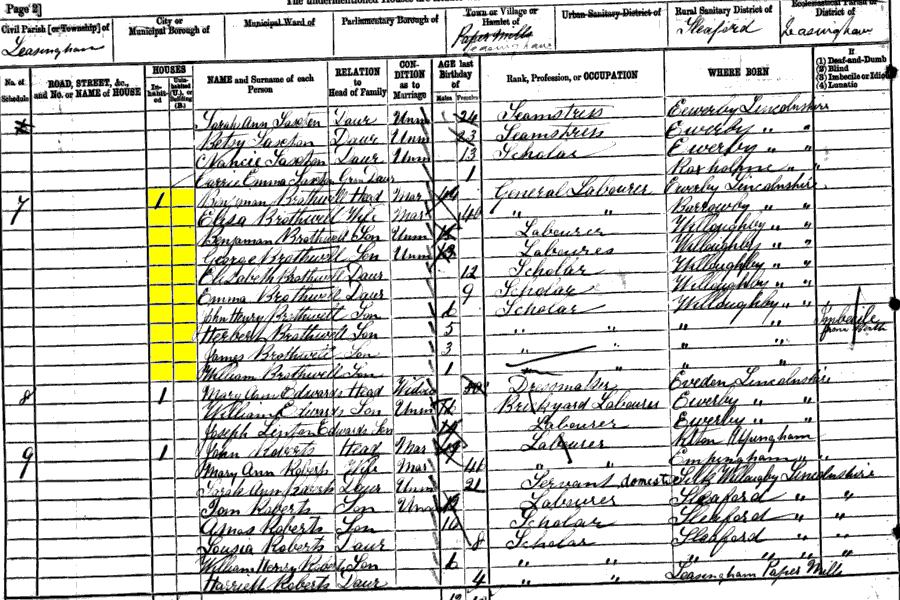 The undermentioned Houses are
Page 2]
Civil Parish [or Township] of
Leasingham
City or Municipal Borough of
Municipal Ward of
Parliamentary Borough of
Town or Village or Hamlet of
Paper Mills
Leasingham
Urban Sanitary District of
Rural Sanitary District of
Sleaford
Ecclesiastical Parish or District of
Leasingham
No. of Schedule
ROAD, STREET, &c., and No. or NAME of HOUSE
HOUSES
Inhabited
Uninhabited (U.), or Building (B.)
NAME and Surname of each Person
RELATION to Head of Family
CONDITION as to Marriage
AGE last Birthday of
Males
Females
Rank, Profession, or OCCUPATION
WHERE BORN
If
(1) Deaf-and-Dumb
(2) Blind
(3) Imbecile or Idiot
(4) Lunatic
Sarah Ann Saxton Daur Unm 24 Seamstress Ewerby Lincolnshire
Betsy Saxton Daur Unm 23 Seamstress Ewerby " "
Nancie Saxton Daur Unm 13 Scholar Ewerby " "
Carrie Emma Saxton Gran Daur 1 Roxholme " "
7 1 Benjaman Brothwell Head Mar General Labourer Ewerby Lincolnshire
Eliza Brothwell Wife Mar 40 " " Borrowby " "
Benjaman Brothwell Son Unm Labourer Willoughby " "
George Brothwell Son Unm 13 Labourer Willoughby " "
Elizabeth Brothwell Daur 12 Scholar Willoughby " "
Emma Brothwell Daur 9 Scholar Willoughby " "
John Henry Brothwell Son 6 Scholar Willoughby " "
Herbert Brothwell Son 5 " " " " Imbecile from Birth
James Brothwell Son 3 " "
William Brothwell Son 1 " "
8 1 Mary Ann Edwards Head Widow Dressmaker Eveden Lincolnshire
William Edwards Son Unm Brickyard Labourer Ewerby " "
Joseph Linton Edwards Son Labourer Ewerby " "
9 1 John Roberts Head Mar 49 Labourer
Mary Ann Roberts Wife Mar 41 " " Empingham " "
Sarah Ann Roberts Daur Unm 21 Servant domest Silk Willougby Lincolnshire
Tom Roberts Son Unm Labourer Sleaford " "
Amos Roberts Son 10 Scholar Sleaford " "
Lousia Roberts Daur 8 Scholar Sleaford " "
William Henry Roberts Son 6 " " " " " "
Harriett Roberts Daur 4 " " Leasingham Paper Mills